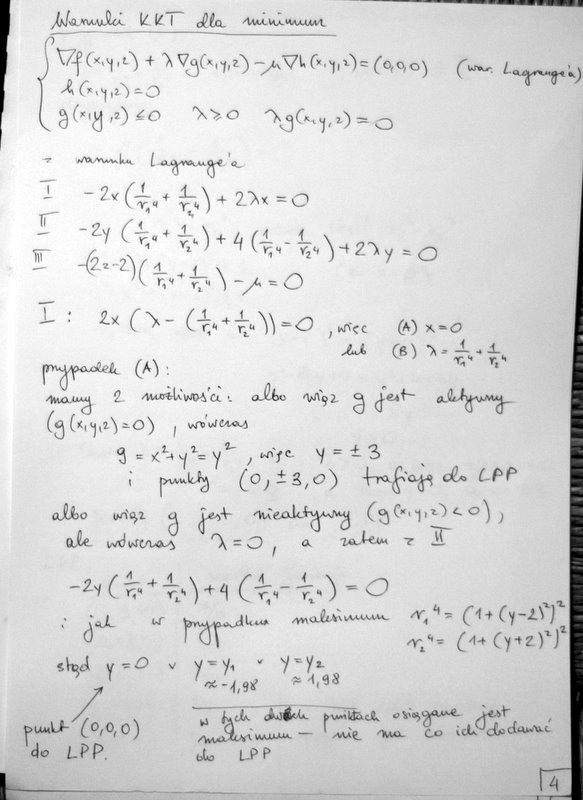 Warunki KKT dla minimum
∇f(x,y,z) + λ∇g(x,y,z) - μ∇h(x,y,z) = (0,0,0) (war. Lagrange'a)
h(x,y,z) = 0
g(x,y,z) ≤ 0 λ ≥ 0 λg(x,y,z) = 0
z warunku Lagrange'a
I -2x(1/r₁⁴ + 1/r₂⁴) + 2λx = 0
II -2y(1/r₁⁴ + 1/r₂⁴) + 4(1/r₁⁴ - 1/r₂⁴) + 2λy = 0
III -(2z-2)(1/r₁⁴ + 1/r₂⁴) - μ = 0
I : 2x(λ - (1/r₁⁴ + 1/r₂⁴)) = 0, więc (A) x = 0
lub (B) λ = 1/r₁⁴ + 1/r₂⁴
przypadek (A):
mamy 2 możliwości: albo więz g jest aktywny
(g(x,y,z) = 0), wówczas
9 = x² + y² = y², więc y = ± 3
i punkty (0, ±3, 0) trafiają do LPP
albo więz g jest nieaktywny (g(x,y,z) < 0),
ale wówczas λ = 0, a zatem z II
-2y(1/r₁⁴ + 1/r₂⁴) + 4(1/r₁⁴ - 1/r₂⁴) = 0
i jak w przypadku maksimum r₁⁴ = (1+(y-2)²)²
r₂⁴ = (1+(y+2)²)²
stąd y = 0 ∨ y = y₁ ∨ y = y₂
≈ -1,98 ≈ 1,98
punkt (0,0,0)
do LPP.
w tych dwóch punktach osiągane jest
maksimum - nie ma co ich dodawać
do LPP
4